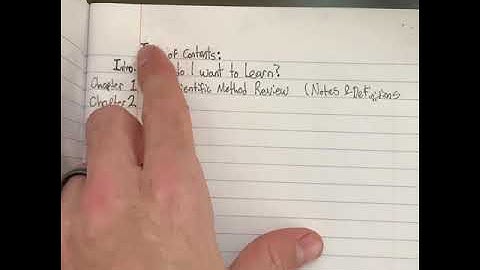 of Contents:
Intro do I want to Learn?
Chapter 1 Scientific Method Review (Notes & Definitions
Chapter 2